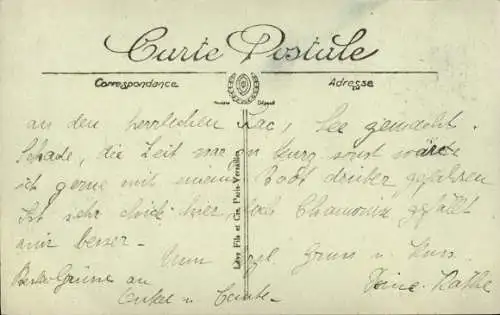 Carte Postale
Correspondance Adresse
Marque Déposée
an den herrlichen Lac, See gemacht.
Schade, die Zeit war zu kurz sonst wäre
ich gerne mit einem Boot drüber gefahren
Ist sehr chick hier, doch Chamonix gefällt
mir besser.
Nun Gruss u. Kuss
Beste Grüsse an Deine Käthe
Onkel u. Tante.
Lévy Fils et Cie, Paris-Versailles